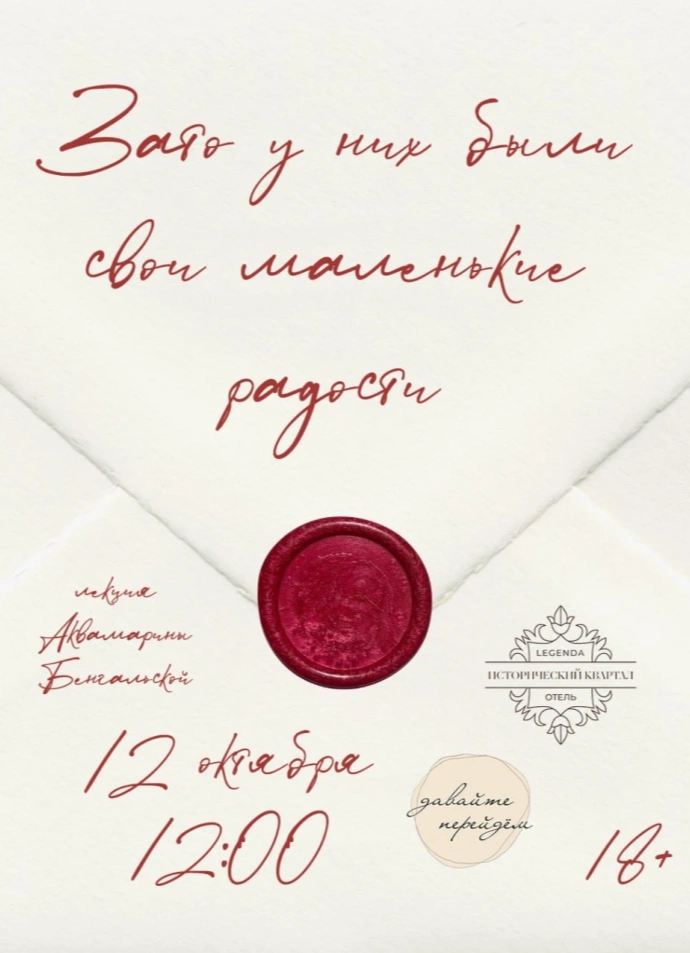 Зато у них были
свои маленькие
радости
лекция
Аквамарины
Бенгальской
LEGENDA
ИСТОРИЧЕСКИЙ КВАРТАЛ
ОТЕЛЬ
12 октября
12:00
давайте
перейдём
18+